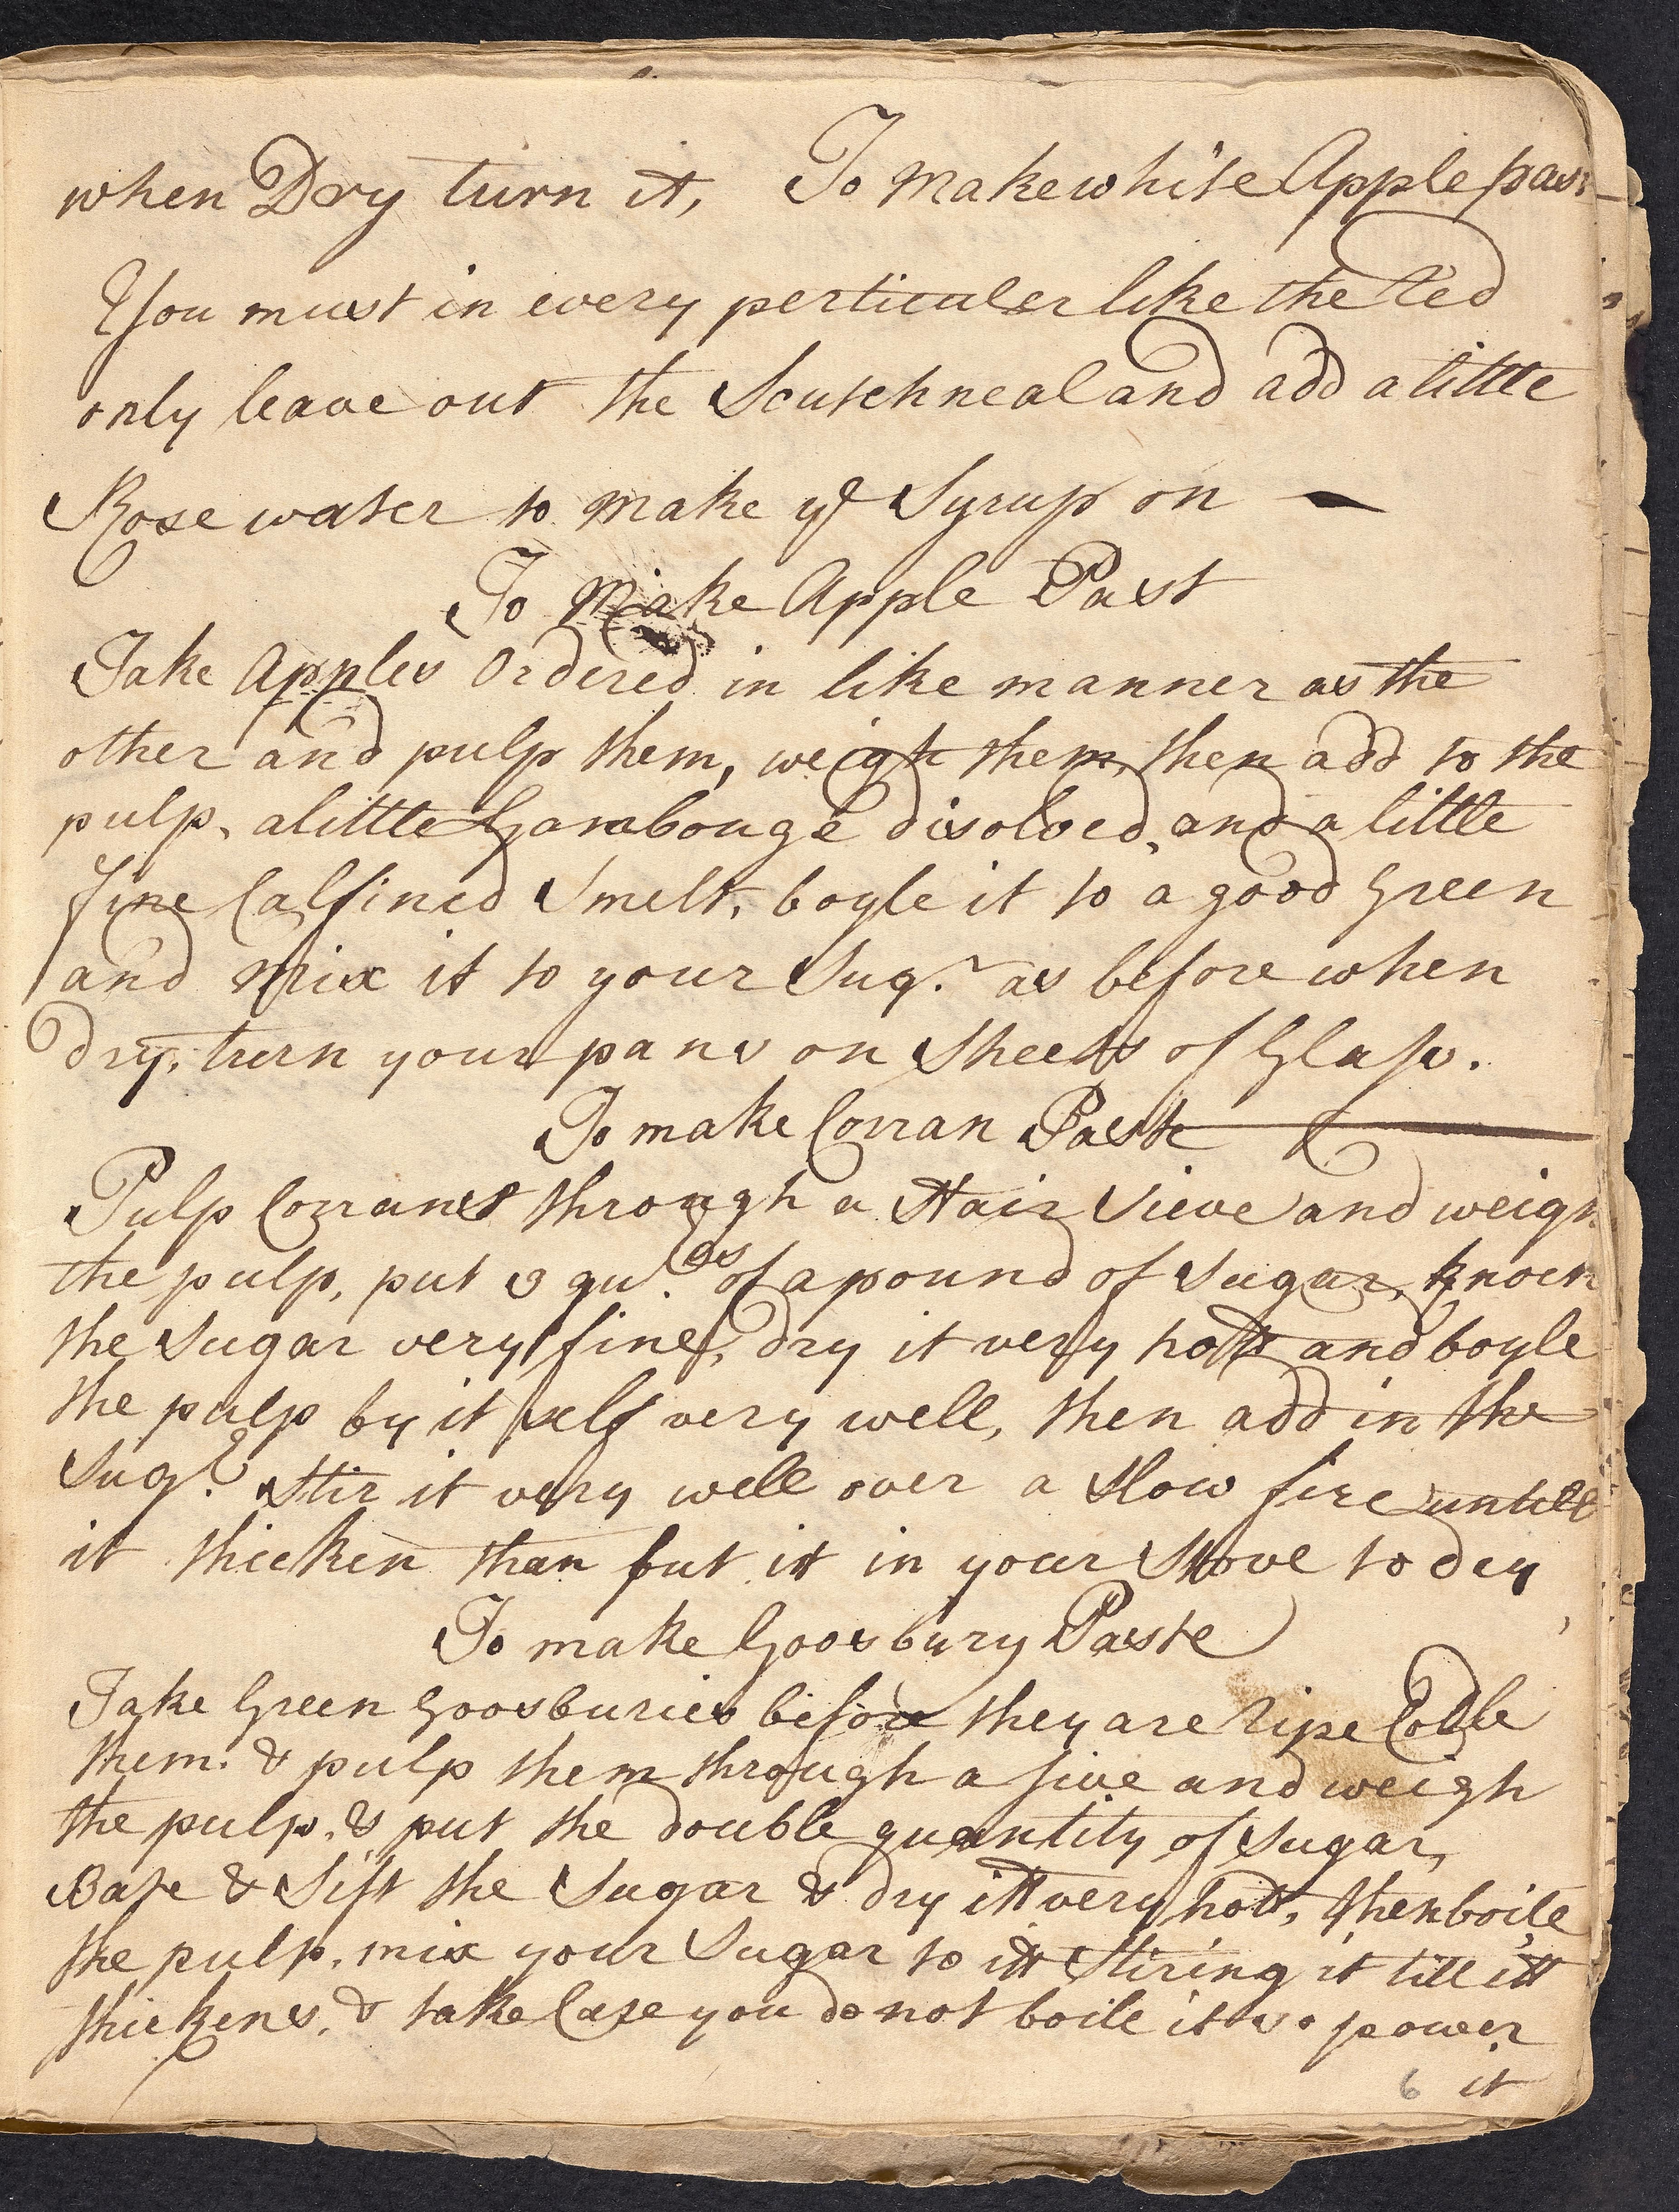 when Dry turn it, To make white Apple past
You must in every perticuler like the Red
only leave out the Scutchneal and add a little
Rose water to make ye Syrup on
To Make Apple Past
Take Apples Ordered in like manner as the
other and pulp them, weigh them, then add to the
pulp, a little Gambouge disolved, and a little
fine Calfined Smelt, boyle it to a good Green
and mix it to your Sugr. as before when
dry, turn your pans on Sheets of Glass.
To make Corran Paste
Pulp Corrans through a Hair Sieve and weigh
the pulp, put 3 qurs. of a pound of Sugar, knock
the Sugar very fine, dry it very hott and boyle
the pulp by it self very well, then add in the
Sugr. Stir it very well over a Slow fire untill
it thicken than put it in your Stove to dry
To make Goosbury Paste
Take Green Goosburies before they are ripe Codle
them. & pulp them through a sive and weigh
the pulp, & put the double quantity of Sugar,
Bate & Sift the Sugar & dry itt very hott, then boile
the pulp, mix your Sugar to itt Stiring it till itt
thickens, & take Care you do not boile it so power
6 it